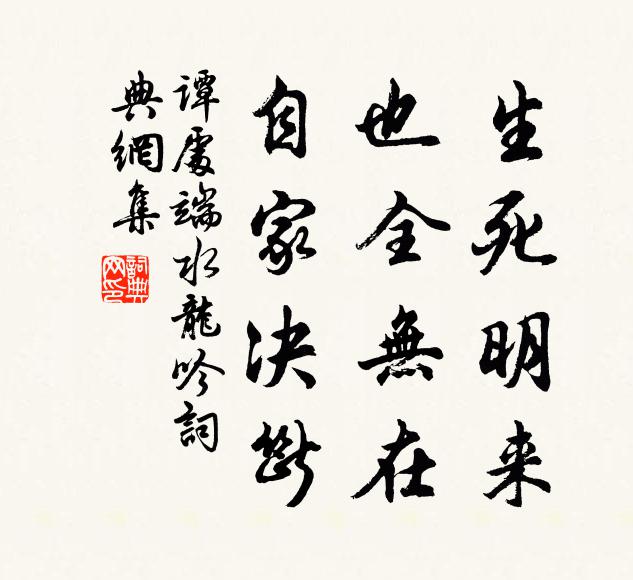 生死明来
也全無在
自家決斷
譚處端水龍吟詞
典網集
詞典網印